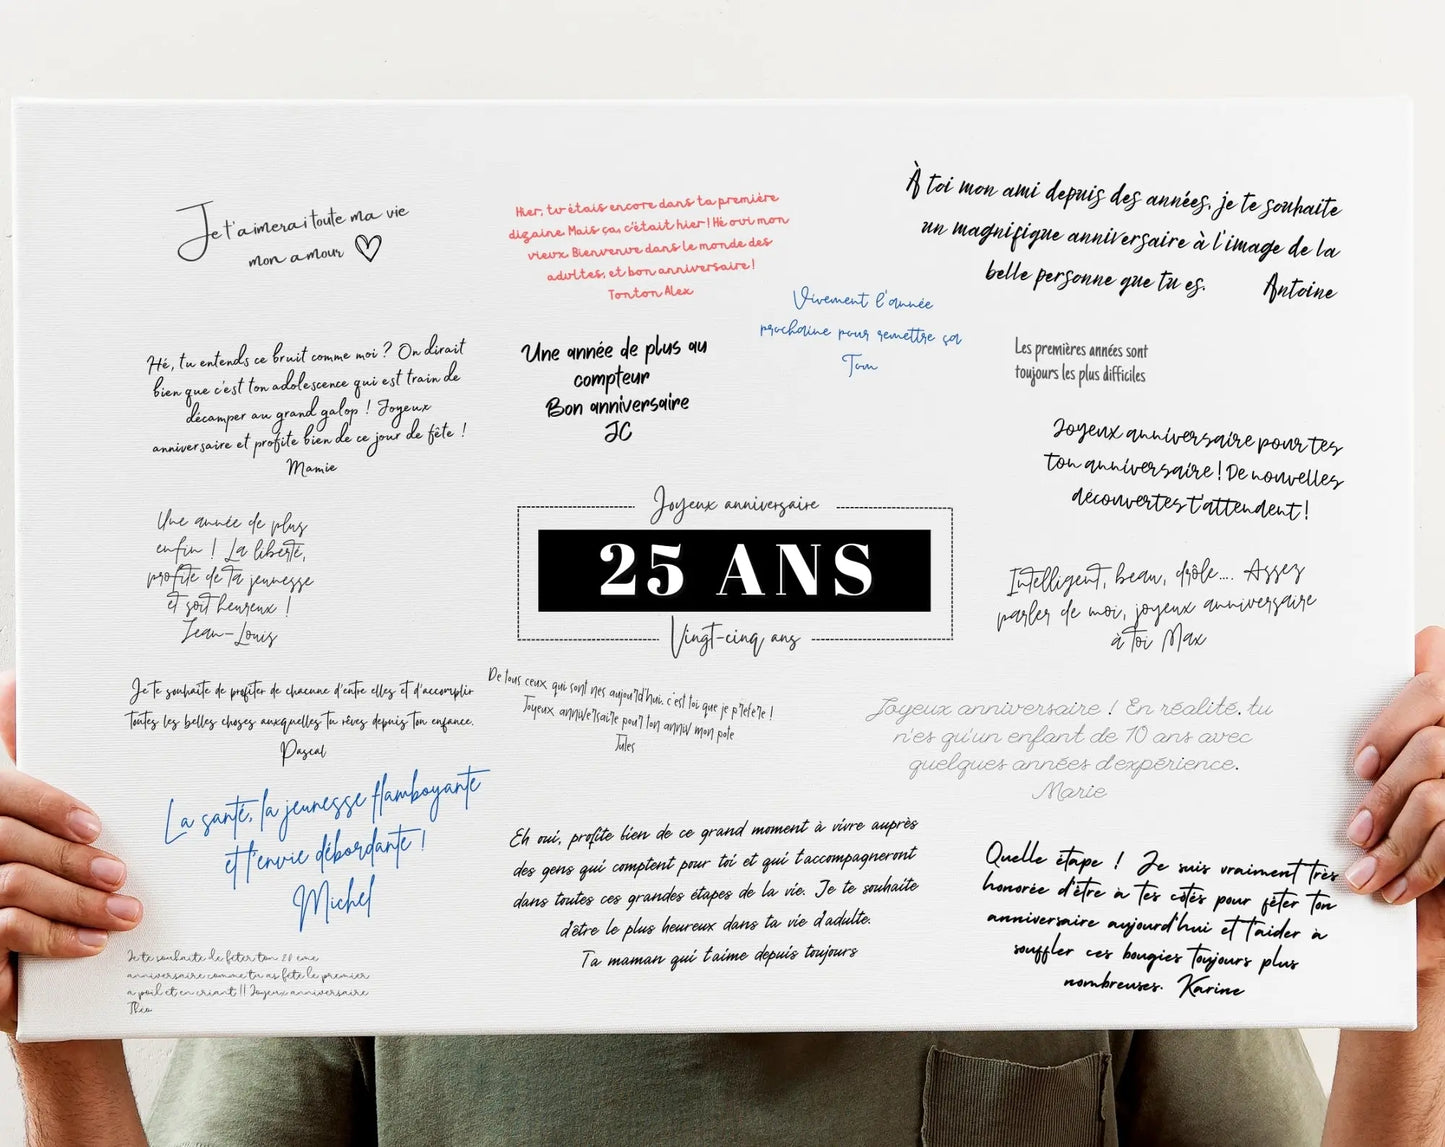 Je t'aimerai toute ma vie
mon amour
Hier, tu étais encore dans ta première
dizaine. Mais ça, c'était hier ! Hé oui mon
vieux. Bienvenue dans le monde des
adultes, et bon anniversaire !
Tonton Alex
À toi mon ami depuis des années, je te souhaite
un magnifique anniversaire à l'image de la
belle personne que tu es. Antoine
Vivement l'année
prochaine pour remettre ça
Tom
Hé, tu entends ce bruit comme moi ? On dirait
bien que c'est ton adolescence qui est train de
décamper au grand galop ! Joyeux
anniversaire et profite bien de ce jour de fête !
Mamie
Une année de plus au
compteur
Bon anniversaire
JC
Les premières années sont
toujours les plus difficiles
Joyeux anniversaire pour tes
ton anniversaire ! De nouvelles
découvertes t'attendent !
Une année de plus
enfin ! La liberté,
profite de ta jeunesse
et soit heureux !
Jean-Louis
Joyeux anniversaire
25 ANS
Vingt-cinq ans
Intelligent, beau, drôle.... Assez
parler de moi, joyeux anniversaire
à toi Max
Je te souhaite de profiter de chacune d'entre elles et d'accomplir
toutes les belles choses auxquelles tu rêves depuis ton enfance.
Pascal
De tous ceux qui sont nes aujourd'hui, c'est toi que je préfère !
Joyeux anniversaire pour ton anniv mon pote
Jules
Joyeux anniversaire ! En réalité, tu
n'es qu'un enfant de 10 ans avec
quelques années d'expérience.
Marie
La santé, la jeunesse flamboyante
et l'envie débordante !
Michel
Eh oui, profite bien de ce grand moment à vivre auprès
des gens qui comptent pour toi et qui t'accompagneront
dans toutes ces grandes étapes de la vie. Je te souhaite
d'être le plus heureux dans ta vie d'adulte.
Ta maman qui t'aime depuis toujours
Quelle étape ! Je suis vraiment très
honorée d'être à tes côtés pour fêter ton
anniversaire aujourd'hui et t'aider à
souffler ces bougies toujours plus
nombreuses. Karine
Je te souhaite de fêter ton 20 eme
anniversaire comme tu as fêté le premier
a poil et en criant !! Joyeux anniversaire
Théo